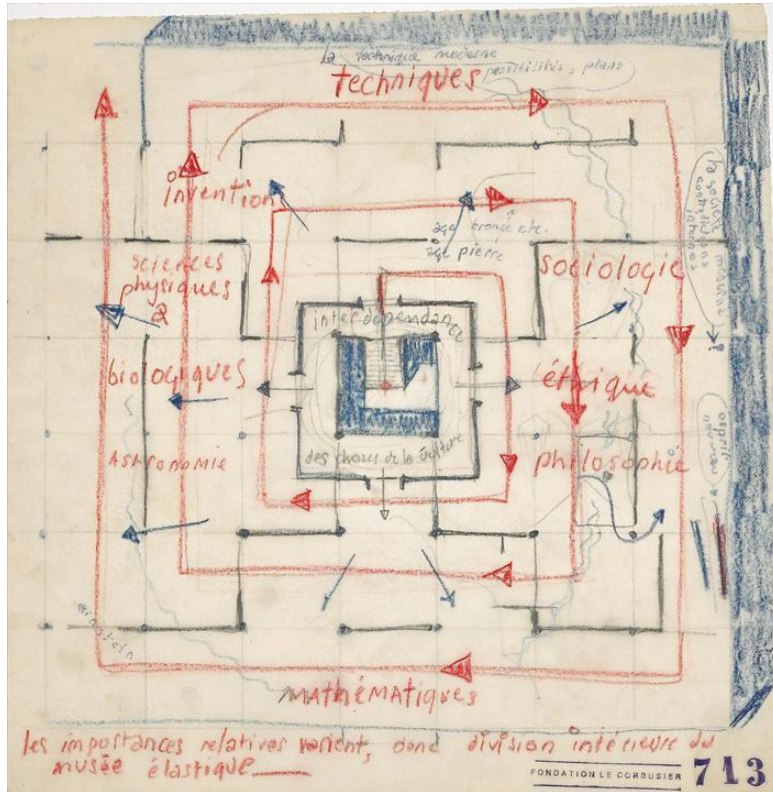 la technique moderne
possibilités, plans
techniques
invention
âge bronze etc.
âge pierre
sciences
physiques
sociologie
interdépendance
biologiques
l'éthique
Astronomie
philosophie
des choses de la culture
esprit
nouveau
la société
contradictions
einstein
mathématiques
les importances relatives varient, donc division intérieure du
musée élastique
FONDATION LE CORBUSIER 713